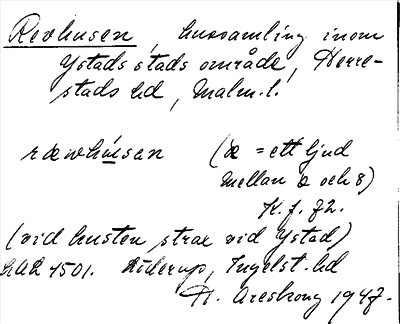 Revhusen, hussamling inom
Ystads stads område, Herre-
stads hd, Malm.l.
rævhúsan (æ = ett ljud
mellan æ och 8)
K. f. 72.
(vid kusten strax vid Ystad)
4501. Löderup, Ingelst. hd
H. Areskoug 1947.